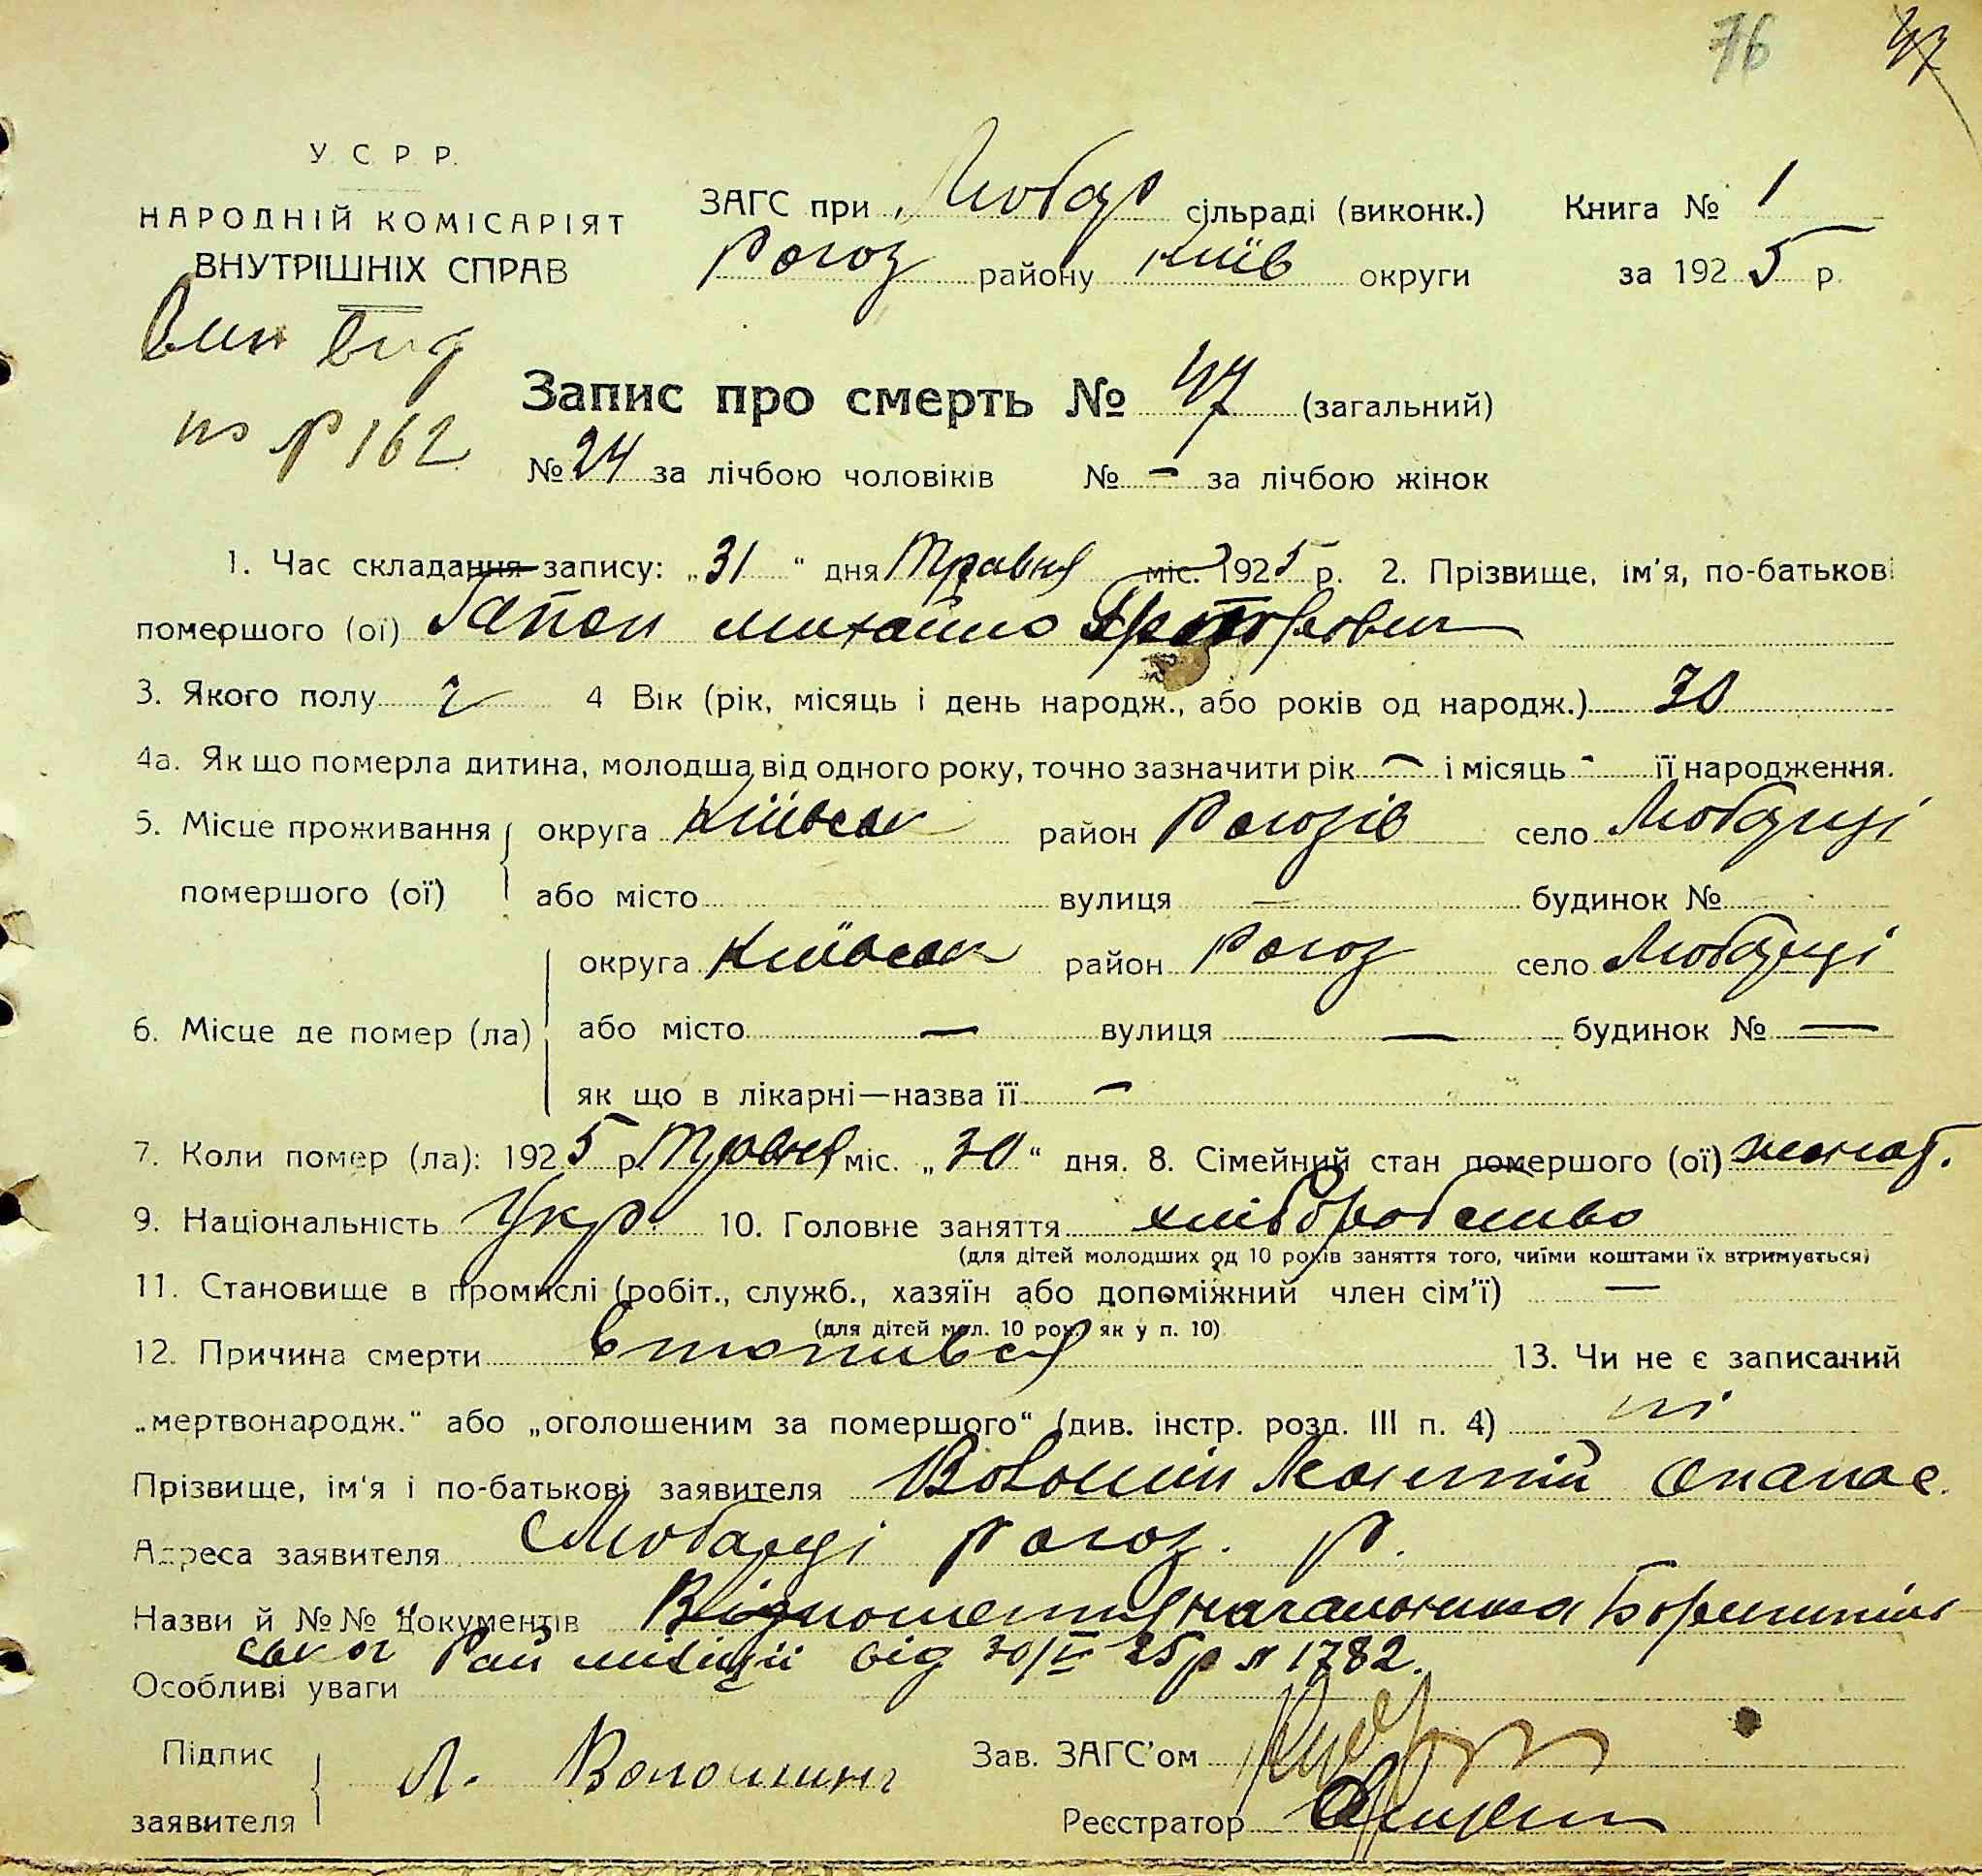 76 47
У. С. Р. Р.
НАРОДНІЙ КОМІСАРІЯТ
ВНУТРІШНІХ СПРАВ
ЗАГС при Любар сільраді (виконк.) Книга № 1
Рогоз району Київ округи за 1925 р.
Вин вид
по № 162
Запис про смерть № 47 (загальний)
№ 24 за лічбою чоловіків № — за лічбою жінок
1. Час складання запису: „31“ дня Травня міс. 1925 р. 2. Прізвище, ім'я, по-батькові
помершого (ої) Гапон михайло
3. Якого полу ч 4 Вік (рік, місяць і день народж., або років од народж.) 30
4а. Як що померла дитина, молодша від одного року, точно зазначити рік — і місяць - її народження.
5. Місце проживання округа Київськ район Рогозів село Любарці
помершого (ої) або місто вулиця — будинок №
округа Київськ район Рогоз село Любарці
6. Місце де помер (ла) або місто — вулиця — будинок № —
як що в лікарні—назва її —
7. Коли помер (ла): 1925 р. Травня міс. „30“ дня. 8. Сімейний стан помершого (ої) жонат.
9. Національність Укр. 10. Головне заняття хліборобство
(для дітей молодших од 10 років заняття того, чиїми коштами їх втримується)
11. Становище в промислі (робіт., служб., хазяїн або допоміжний член сім'ї) —
(для дітей мол. 10 рок. як у п. 10)
12. Причина смерти втопився 13. Чи не є записаний
„мертвонародж.“ або „оголошеним за помершого“ (див. інстр. розд. III п. 4) ні
Прізвище, ім'я і по-батькові заявителя Волошин Леонтій Опанас.
Адреса заявителя с Любарці Рогоз. Р.
Назви й №№ документів Відношення начальника Бориспіль-
ської Рай міліції від 30/V 25р № 1782.
Особливі уваги
Підпис Л. Волошин Зав. ЗАГС'ом
заявителя Реєстратор